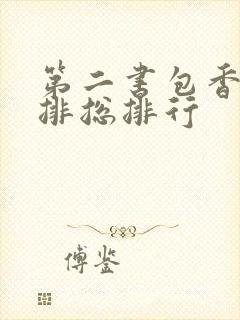 第二书包香
排总排行
傅鉴